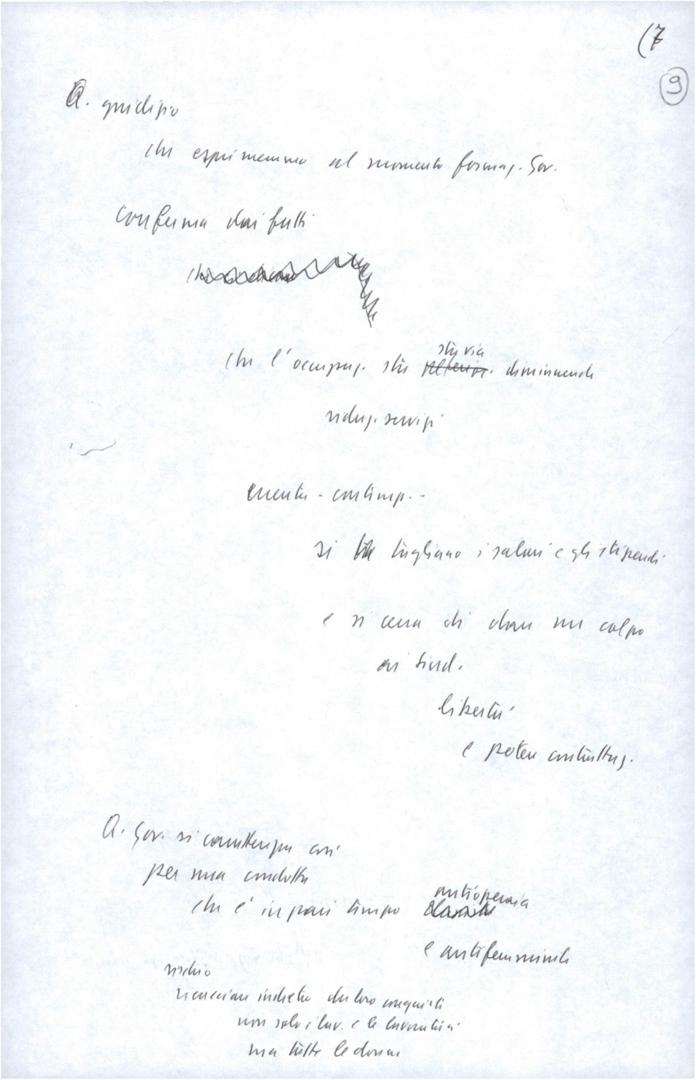 (7
9
Q. giudizio
che esprimemmo al momento formaz. Gov.
conferma dai fatti
che l'occupaz. sta
sta via
diminuendo
riduz. servizi
si tagliano i salari e gli stipendi
e si cerca di dare un colpo
ai sind.
libertà
e potere contrattuaz.
Q. Gov. si caratterizza così
per una condotta
che è in pari tempo
antioperaia
e antifemminile
rischio
ricacciare indietro da loro conquiste
non solo i lav. e le lavoratrici
ma tutte le donne